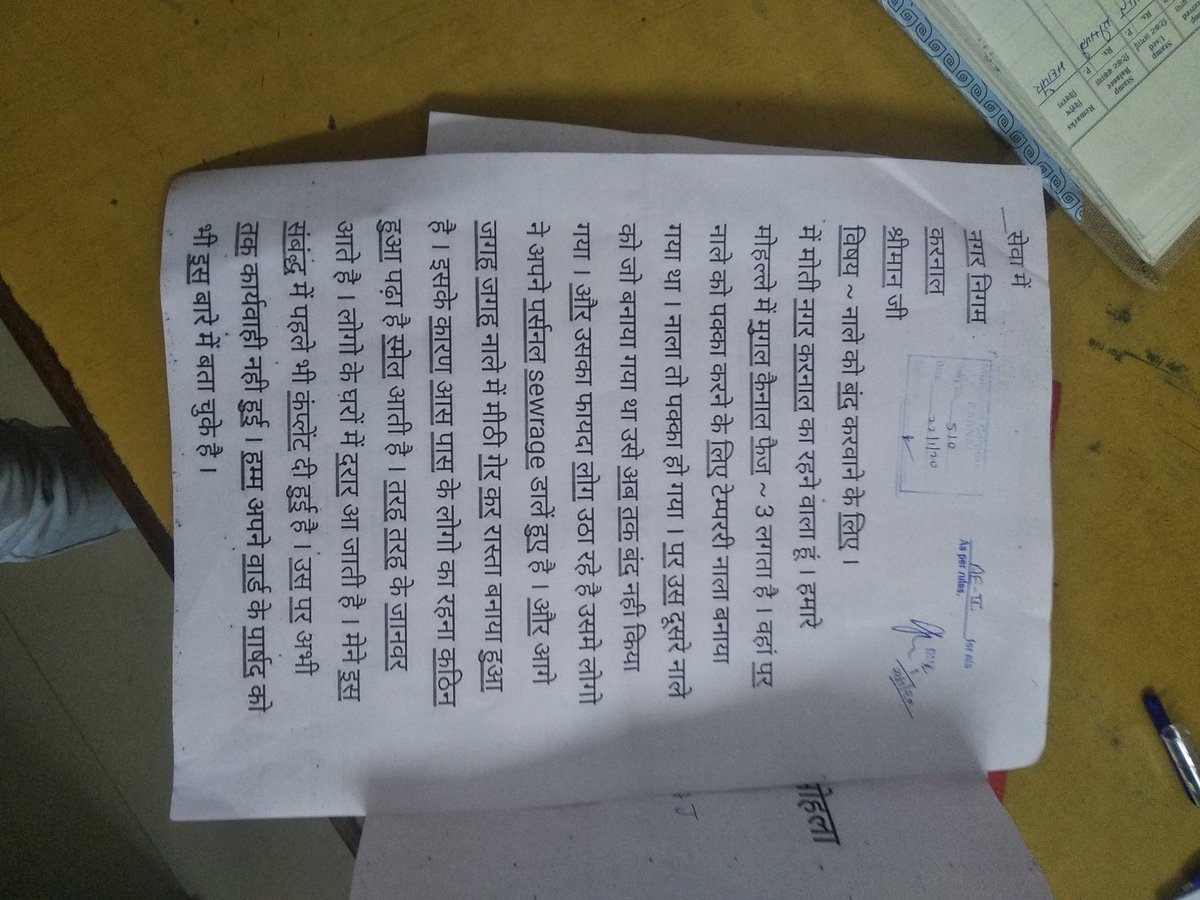 सेवा में
नगर निगम
करनाल
श्रीमान जी
विषय ~ नाले को बंद करवाने के लिए ।
में मोती नगर करनाल का रहने वाला हूं । हमारे
मोहल्ले में मुगल कैनाल फैज ~ 3 लगता है । वहां पर
नाले को पक्का करने के लिए टेम्परी नाला बनाया
गया था । नाला तो पक्का हो गया । पर उस दूसरे नाले
को जो बनाया गया था उसे अब तक बंद नही किया
गया । और उसका फायदा लोग उठा रहे है उसमे लोगो
ने अपने पर्सनल sewrage डालें हुए है । और आगे
जगाह जगाह नाले में मीठी गेर कार रास्ता बनाया हुआ
है । इसके कारण आस पास के लोगो का रहना कठिन
हुआ पढ़ा है स्मेल आती है । तरह तरह के जानवर
आते है । लोगो के घरों में दरार आ जाती है । मेने इस
संबंद्ध में पहले भी कंप्लेंट दी हुई है । उस पर अभी
तक कार्यवाही नही हुई । हमम अपने वार्ड के पार्षद को
भी इस बारे में बता चुके है ।
510
22/1/20
AE-II for n/a
As per rules.
मोहला
Remarks
विशेष विवरण
Stamp Balance
Rs. P.
Stamp Used